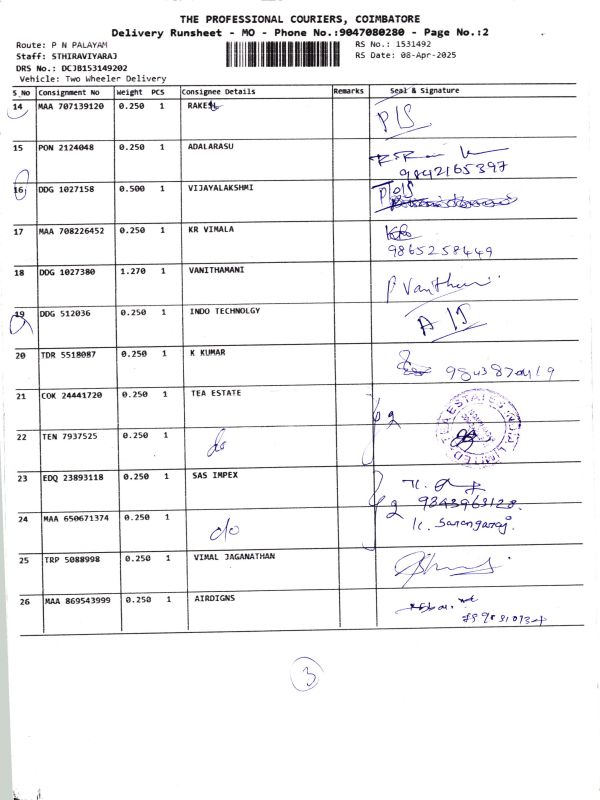 THE PROFESSIONAL COURIERS, COIMBATORE
Delivery Runsheet - MO - Phone No.:9047080280 - Page No.:2
Route: P N PALAYAM
RS No.: 1531492
Staff: STHIRAVIYARAJ
RS Date: 08-Apr-2025
DRS No.: DCJB153149202
Vehicle: Two Wheeler Delivery
S_No Consignment No Weight PCS Consignee Details Remarks Seal & Signature
14 MAA 707139120 0.250 1 RAKESH P/S
15 PON 2124048 0.250 1 ADALARASU
9842165397
16 DDG 1027158 0.500 1 VIJAYALAKSHMI
17 MAA 708226452 0.250 1 KR VIMALA
9865258449
18 DDG 1027380 1.270 1 VANITHAMANI P Vanitham
19 DDG 512036 0.250 1 INDO TECHNOLGY A/S
20 TDR 5518087 0.250 1 K KUMAR
21 COK 24441720 0.250 1 TEA ESTATE
TEA ESTATES INDIA LIMITED
22 TEN 7937525 0.250 1 do
23 EDQ 23893118 0.250 1 SAS IMPEX
24 MAA 650671374 0.250 1 do
25 TRP 5088998 0.250 1 VIMAL JAGANATHAN
26 MAA 869543999 0.250 1 AIRDIGNS
3